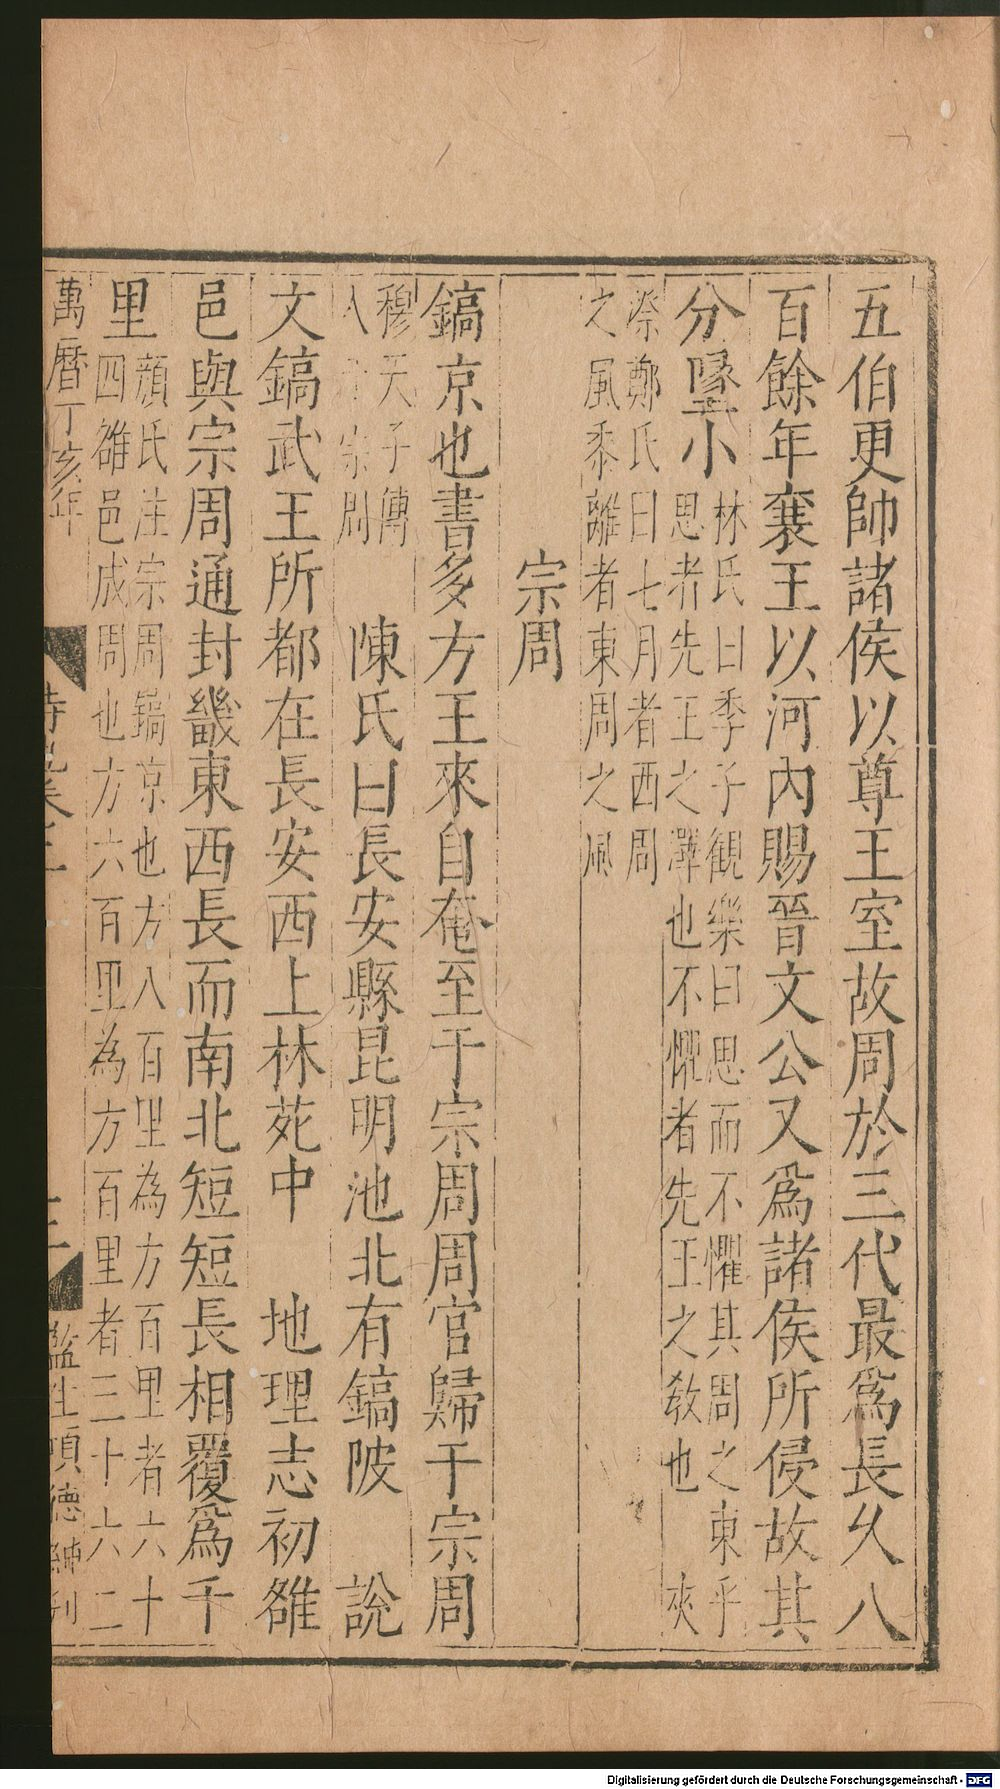 五伯更帥諸侯以尊王室故周於三代最爲長乆八
百餘年襄王以河內賜晉文公又爲諸侯所侵故其
分墬小
林氏曰季子觀樂曰思而不懼其周之東乎
思者先王之澤也不懼者先王之敎也　夾
漈鄭氏曰七月者西周
之風黍離者東周之風
宗周
鎬京也書多方王來自奄至于宗周周官歸于宗周
穆天子傳
入　宗周
陳氏曰長安縣昆明池北有鎬陂　說
文鎬武王所都在長安西上林苑中　地理志初雒
邑與宗周通封畿東西長而南北短短長相覆爲千
里
顔氏注宗周鎬京也方八百里為方百里者六十
四雒邑成周也方六百里為方百里者三十六二
萬曆丁亥年
監生項德 刋
Digitalisierung gefördert durch die Deutsche Forschungsgemeinschaft - DFG